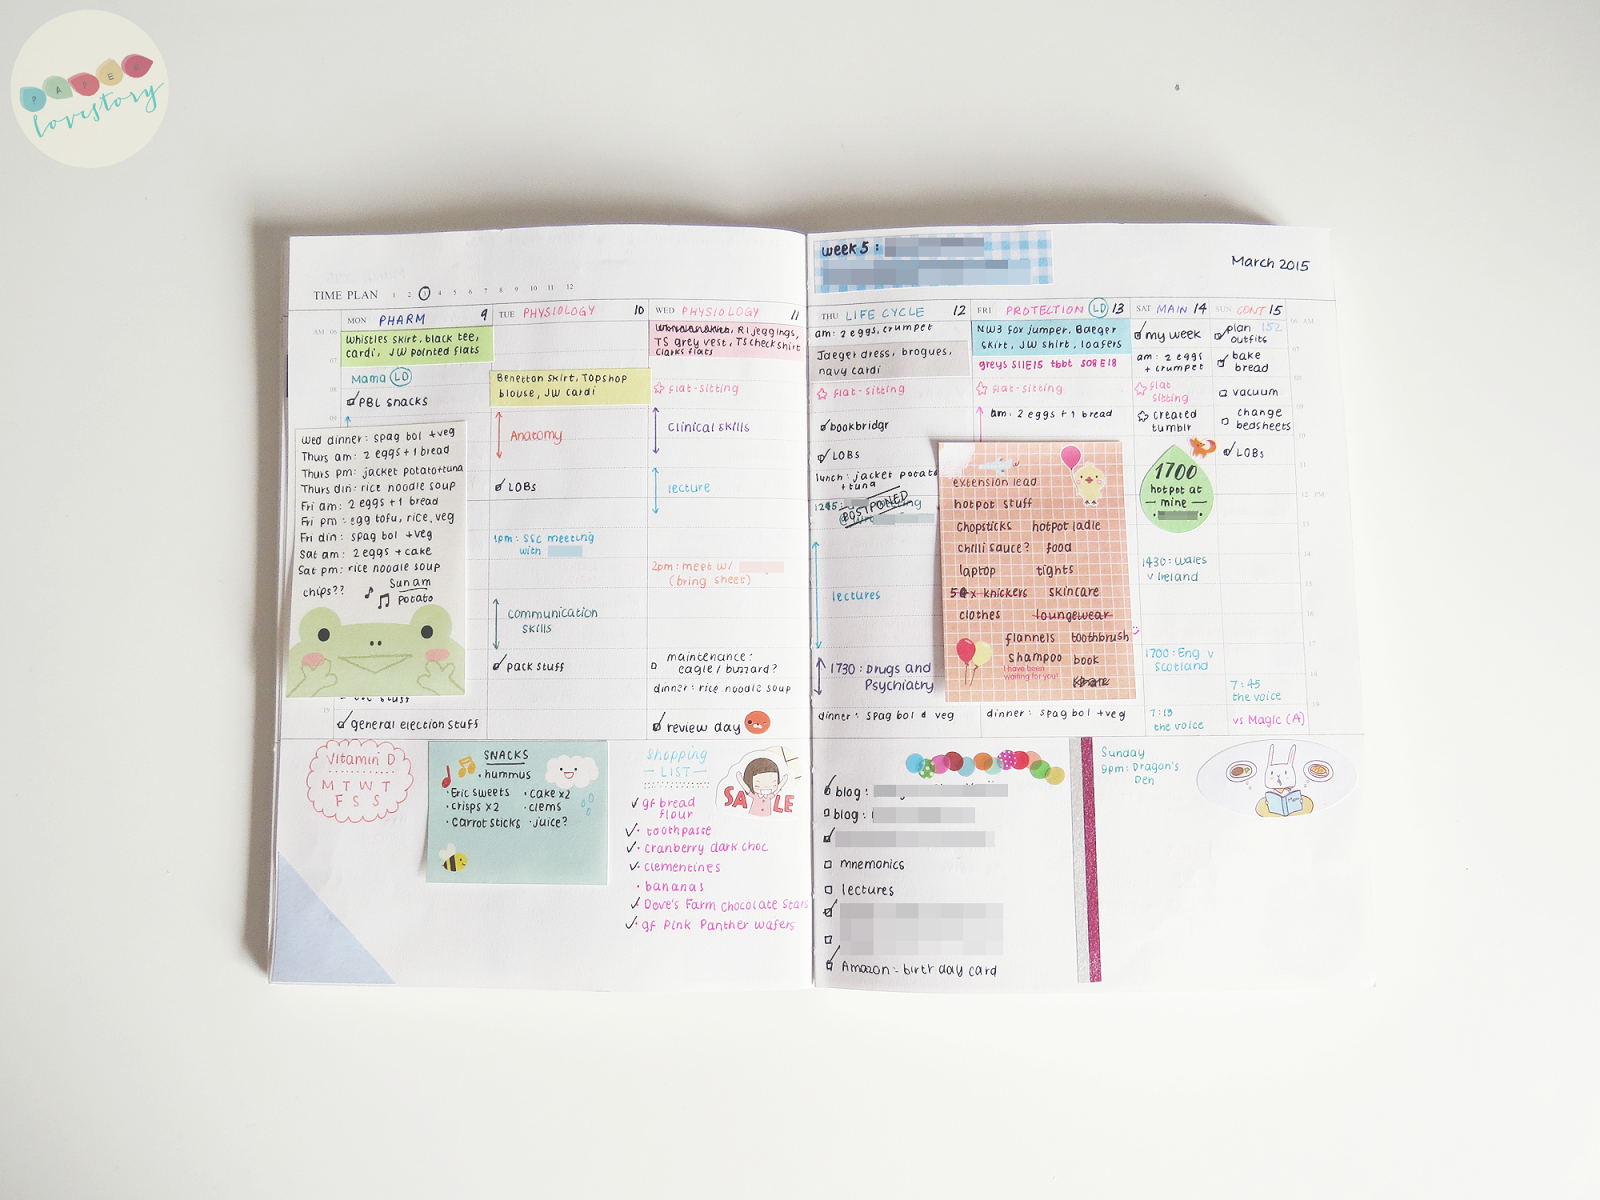 PAPER
lovestory
TIME PLAN 1 2 3 4 5 6 7 8 9 10 11 12
MON PHARM 9
Whistles skirt, black tee,
cardi, JW pointed flats
Mama LD
PBL snacks
Wed dinner: spag bol + veg
Thurs am: 2 eggs + 1 bread
Thurs pm: jacket potato + tuna
Thurs din: rice noodle soup
Fri am: 2 eggs + 1 bread
Fri pm: egg tofu, rice, veg
Fri din: spag bol + veg
Sat am: 2 eggs + cake
Sat pm: rice noodle soup
chips??
Sun am
potato
general election stuff
TUE PHYSIOLOGY 10
Benetton skirt, Topshop
blouse, JW cardi
Anatomy
LOBs
1pm: SSC meeting
with
communication
skills
pack stuff
WED PHYSIOLOGY 11
RI jeggings,
TS grey vest, TS check shirt
Clarks flats
flat-sitting
clinical skills
lecture
2pm: meet w/
(bring sheet)
maintenance:
eagle / buzzard?
dinner: rice noodle soup
review day
Vitamin D
M T W T
F S S
SNACKS
· hummus
· Eric sweets · cake x2
· crisps x2 · clems
· carrot sticks · juice?
shopping
LIST
gf bread
flour
· toothpaste
· cranberry dark choc
· clementines
· bananas
· Dove's Farm chocolate stars
· gf Pink Panther wafers
SALE
week 5:
March 2015
THU LIFE CYCLE 12
am: 2 eggs, crumpet
Jaeger dress, brogues,
navy cardi
flat-sitting
bookbridgr
LOBs
lunch: jacket potato
+ tuna
1245:
POSTPONED
lectures
1730: Drugs and
Psychiatry
dinner: spag bol & veg
FRI PROTECTION LD 13
NW3 fox jumper, Baeger
skirt, JW shirt, loafers
greys S11E15 tbbt S08E18
flat-sitting
am: 2 eggs + 1 bread
extension lead
hotpot stuff
chopsticks hotpot ladle
chilli sauce? food
laptop tights
x knickers skincare
clothes loungewear
flannels toothbrush
shampoo book
I have been
waiting for you!
dinner: spag bol + veg
SAT MAIN 14
my week
am: 2 eggs
+ crumpet
flat
sitting
created
tumblr
1700
hotpot at
mine
1430: Wales
v Ireland
1700: Eng v
Scotland
7:15
the voice
SUN CONT 15
plan 152
outfits
bake
bread
vacuum
change
bedsheets
LOBs
7:45
the voice
vs Magic (A)
blog:
blog:
mnemonics
lectures
Amazon: birthday card
Sunday
9pm: Dragon's
Den